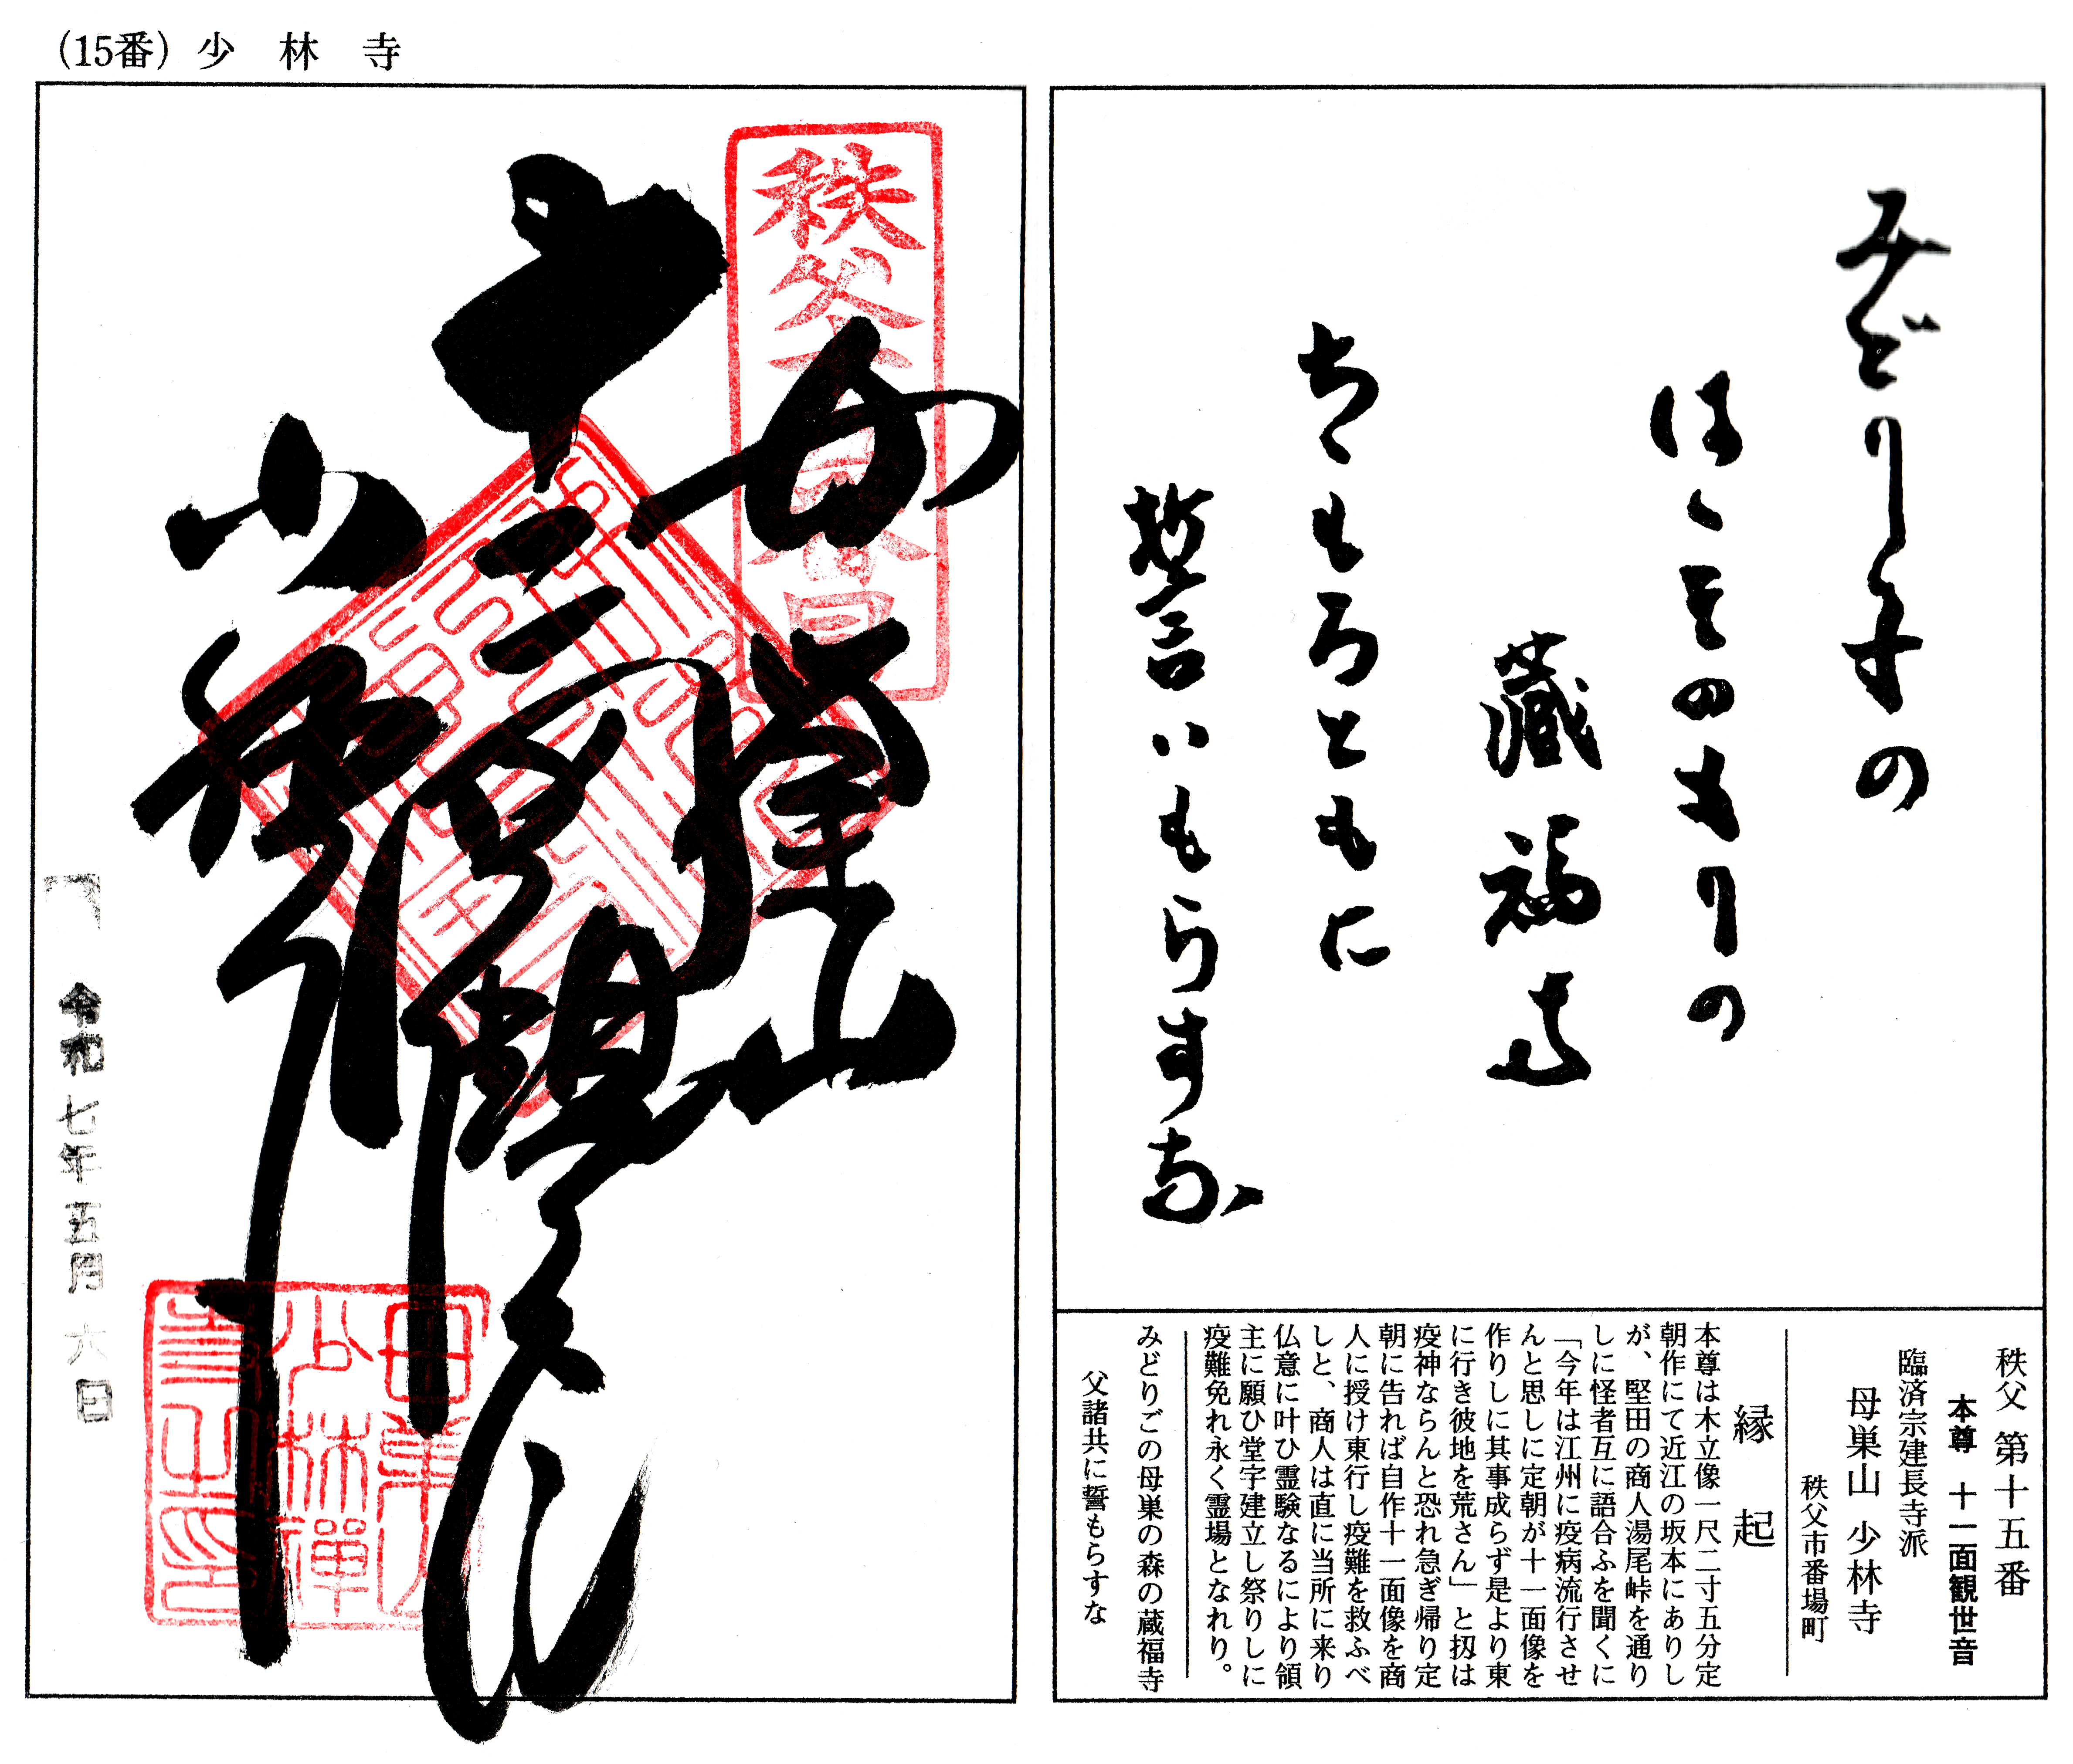 (15番) 少林寺
みどり子の
はゝその森りの
藏福寺
ちゝもろともに
誓いもらすな
秩父 第十五番
本尊 十一面観世音
臨済宗建長寺派
母巣山 少林寺
秩父市番場町
縁起
本尊は木立像一尺二寸五分定
朝作にて近江の坂本にありし
が、堅田の商人湯尾峠を通り
しに怪者互に語合ふを聞くに
「今年は江州に疫病流行させ
んと思しに定朝が十一面像を
作りしに其事成らず是より東
に行き彼地を荒さん」と扨は
疫神ならんと恐れ急ぎ帰り定
朝に告れば自作十一面像を商
人に授け東行し疫難を救ふべ
しと、商人は直に当所に来り
仏意に叶ひ霊験なるにより領
主に願ひ堂宇建立し祭りしに
疫難免れ永く霊場となれり。
みどりごの母巣の森の蔵福寺
父諸共に誓もらすな
秩父十五番
母巣山
十一面観世音
少林寺
令和七年五月六日